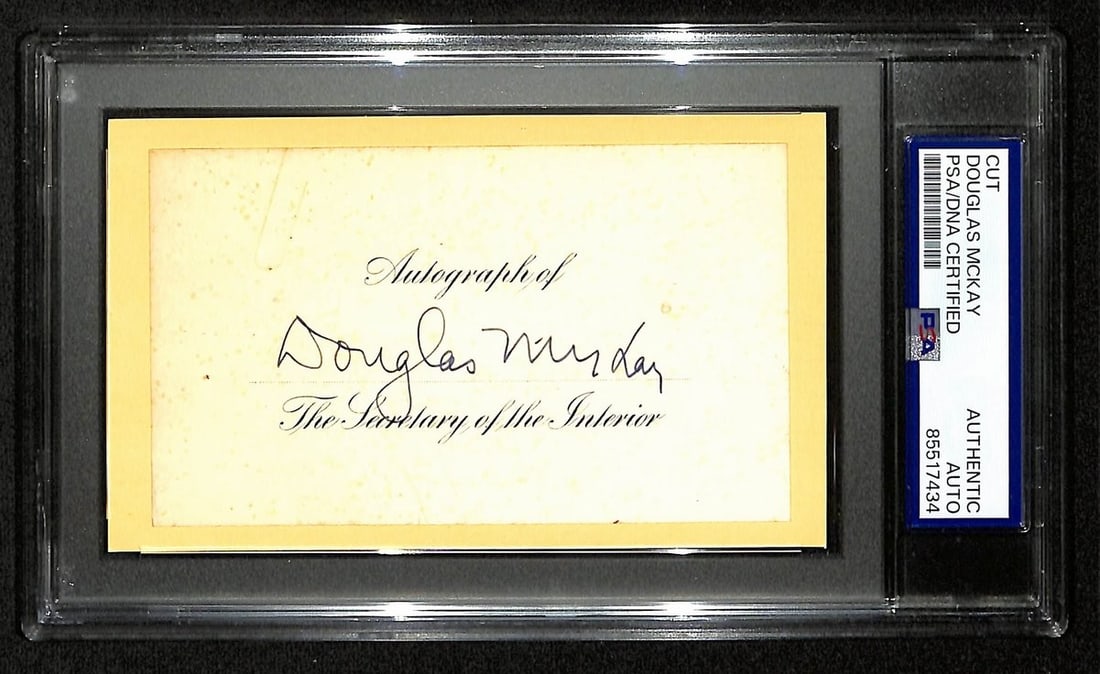 Autograph of
Douglas McKay
The Secretary of the Interior
CUT
DOUGLAS MCKAY
PSA/DNA CERTIFIED
AUTHENTIC
AUTO
85517434
PSA